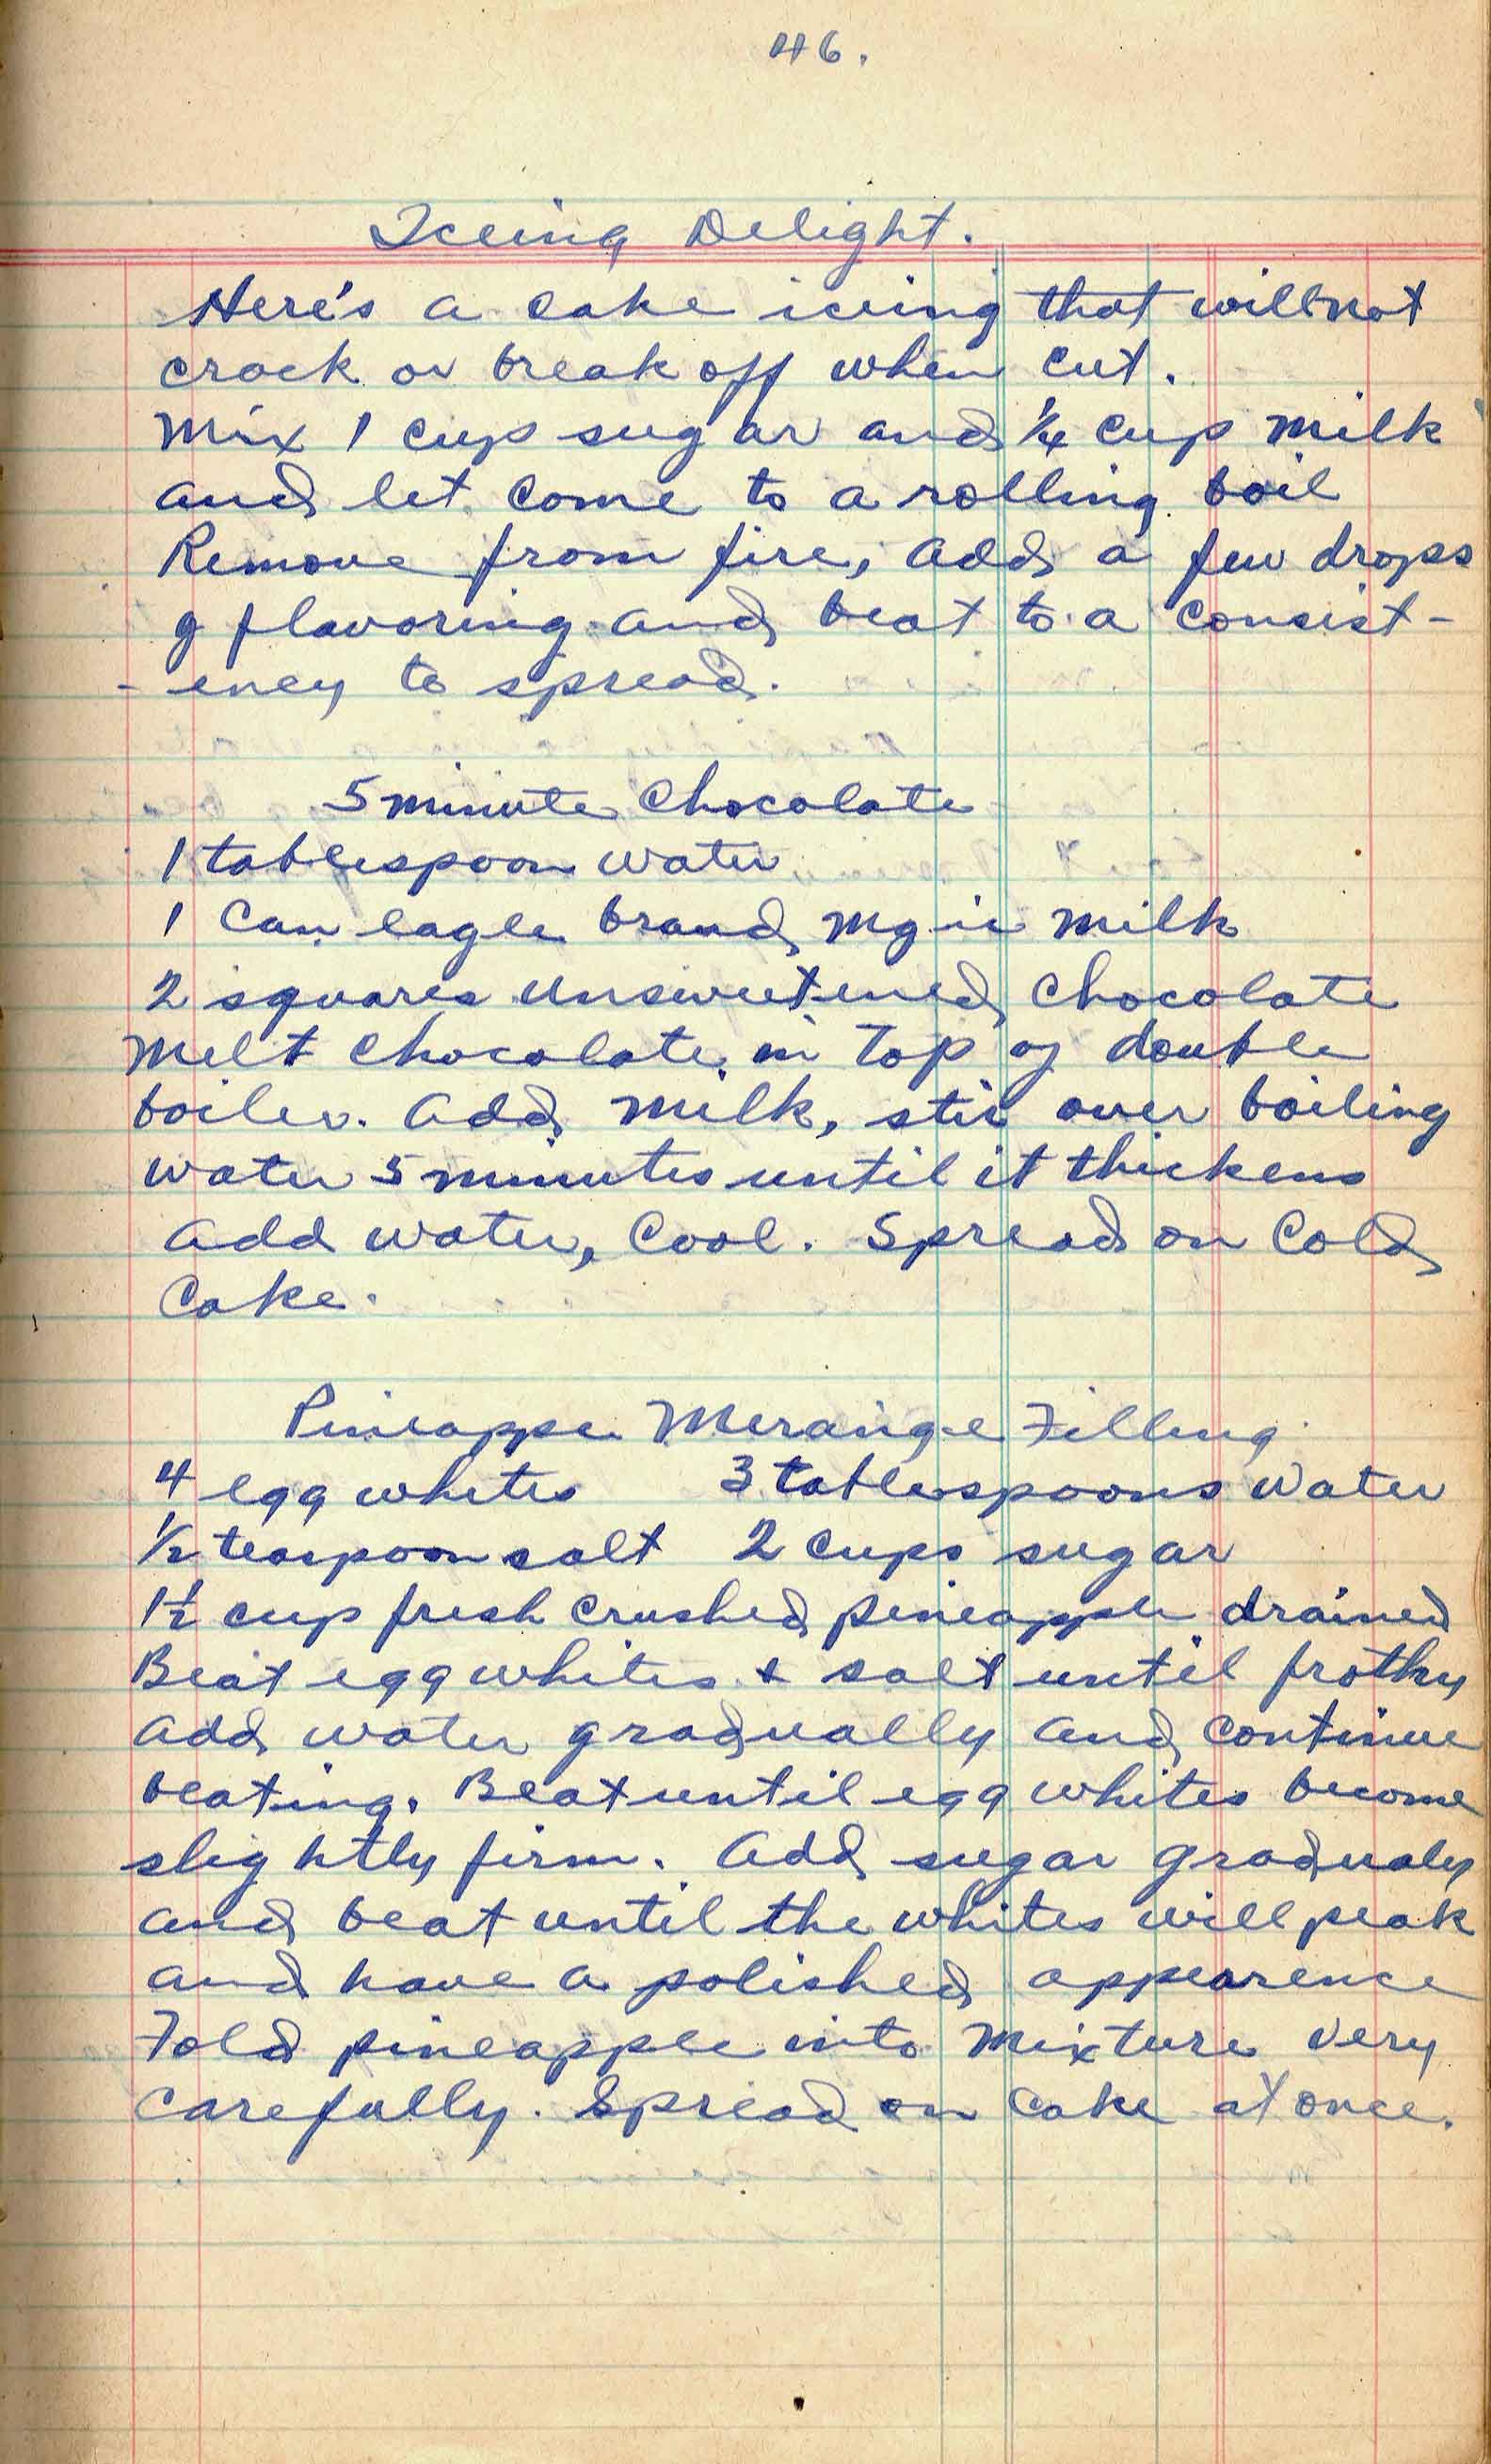 46.
Iceing Delight.
Here's a cake iceing that will not
crack or break off when cut.
Mix 1 cup sugar and 1/4 cup milk
and let come to a rolling boil
Remove from fire, add a few drops
of flavoring and beat to a consist-
-ency to spread.
5 minute Chocolate
1 tablespoon water
1 Can eagle brand mgic milk
2 squares unsweetened chocolate
Melt chocolate in top of double
boiler. Add milk, stir over boiling
water 5 minutes until it thickens
add water, Cool. Spread on Cold
Cake.
Pineappe Merainge Filling
4 egg whites 3 tablespoons water
1/2 teaspoon salt 2 cups sugar
1 1/2 cup fresh crushed pineapple drained
Beat egg whites + salt until frothy
add water gradually and continue
beating. Beat until egg whites become
slightly firm. Add sugar gradualy
and beat until the whites will peak
and have a polished appearence
Fold pineapple into mixture very
carefully. Spread on cake at once.